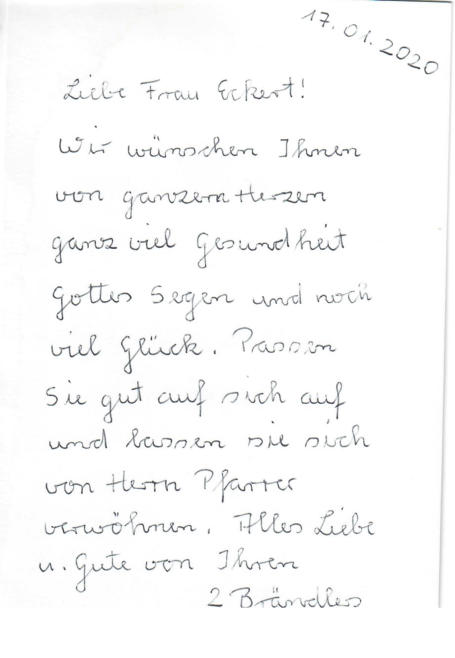 17.01.2020
Liebe Frau Eckert!
Wir wünschen Ihnen
von ganzem Herzen
ganz viel Gesundheit
Gottes Segen und noch
viel Glück. Passen
Sie gut auf sich auf
und lassen sie sich
von Herrn Pfarrer
verwöhnen. Alles Liebe
u. Gute von Ihren
2 Brändles